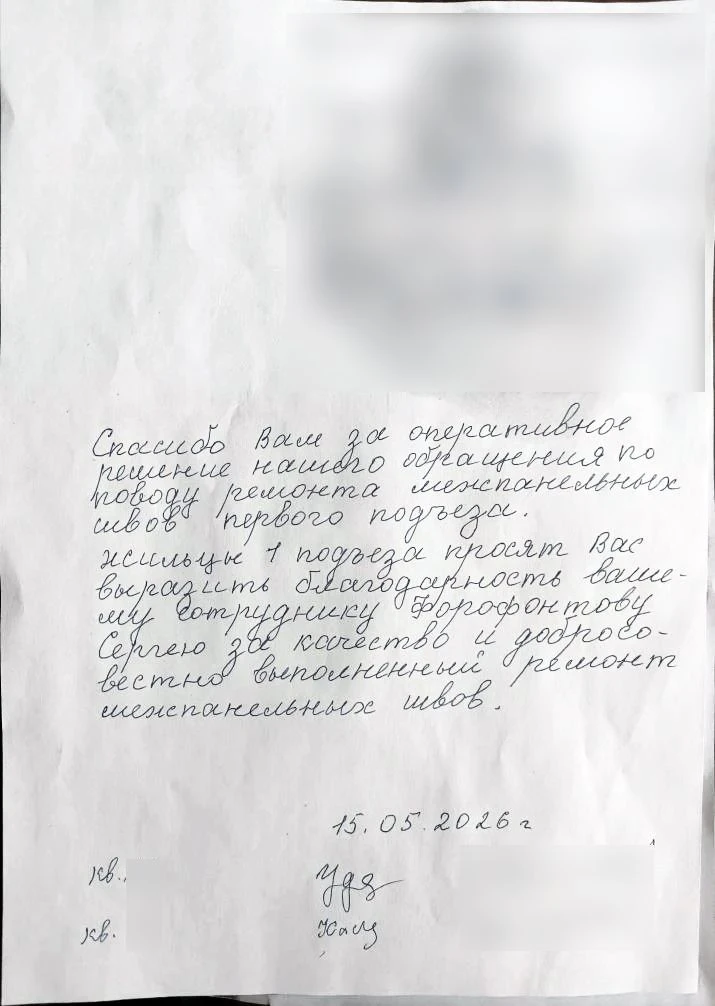 Спасибо Вам за оперативное
решение нашего обращения по
поводу ремонта межпанельных
швов первого подъеза.
жильцы 1 подъеза просят Вас
выразить благодарность ваше-
му сотруднику Форофонтову
Сергею за качество и добросо-
вестно выполненный ремонт
межпанельных швов.
15.05.2026 г
кв.
кв.